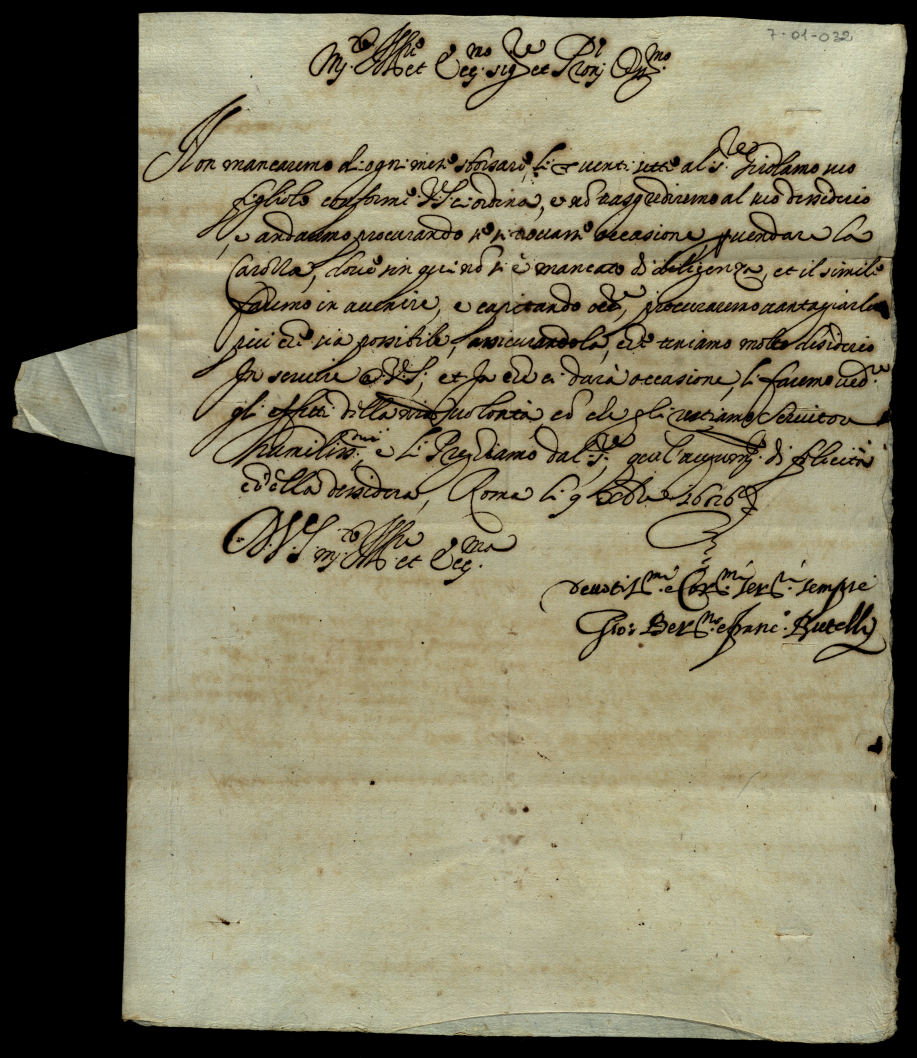 7-01-032
M.to Ill.re et Ecc.mo sig.re et Pron Oss.mo
Non mancaremo di ogni mese sborsare li venti sette al s.r Girolamo suo
figliolo conforme V.S. ci ordina, e nō trasgrediremo al suo desiderio
e andaremo procurando se si trovasse occasione p vendere la
Carozza, dove sin qui nō si è mancato di diligenza, et il simile
faremo in avenire, e capitando procuraremo avantagiarla
più che sia possibile, assicurandola, che teniamo molto desiderio
In servire V.S., et se ci darà occasione, li faremo ved.re
gli effetti della volontà, ed che gli restiamo servitori
humiliss.mi, e li Preghiamo dal S.re quel'augum.to di felicità
ch'ella desidera, Roma li 9 1626
D. V. S. m.to Ill.re et Ecc.ma
devotiss.mi e Ser.ri sempre
Gio: Ber.no e Franc.o Butelli